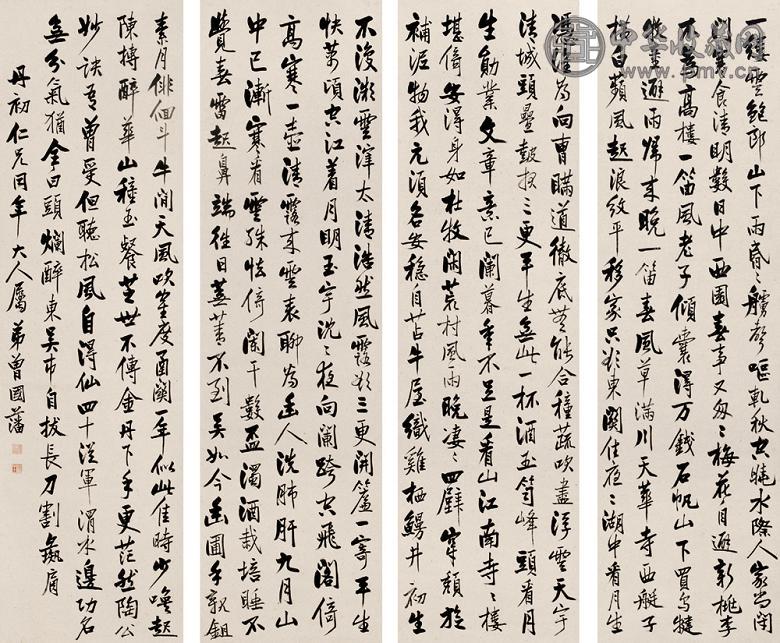 一縷雲鮑郎山下雨昏艣聲嘔軋秋空曉水際人家尚閉
門寒食清明數日中西園春事又匆〻梅花自避新桃李
不爲高樓一笛風老子傾囊得万錢石帆山下買烏犍
牧童避雨歸來晚一笛春風草滿川天華寺西艇子
橫白蘋風起浪紋平移家只欲東關住夜〻湖中看月生
憑誰爲向曹瞞道徹底無能合種蔬吹盡浮雲天宇
清城頭疊鼓報三更平生無此一杯酒玉笥峰頭看月
生勛業文章意已闌暮年不足是看山江南寺〻樓
堪倚安得身如杜牧閑荒村風雨晚淒〻四壁穿頹旋
補泥物我元須各安穩自苫牛屋織雞栖鰻井初生
不復瀕雲滓太清浩然風露欲三更開簾一寄平生
快萬頃空江着月明玉宇沈〻夜向闌跨空飛閣倚
高寒一壺清露來雲表聊爲幽人洗肺肝九月山
中已漸寒看雲殊怯倚闌干數盃濁酒栽培睡不
覺春雷起鼻端往日蕪菁不到吳如今幽圃手親鉏
素月徘徊斗牛間天風吹笙度函關一年似此佳時少喚起
陳摶醉華山種玉餐芝世不傳金丹下手更茫然陶公
妙訣吾曾受但聽松風自得仙四十從軍渭水邊功名
無分氣猶全白頭爛醉東吳市自拔長刀割彘肩
丹初仁兄同年大人屬 弟曾國藩
中华收藏网
www.pmv.cn